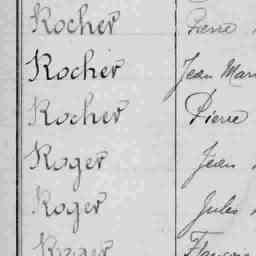 Rocher Pierre
Rocher Jean Mari
Rocher Pierre
Roger Jean
Roger Jules
Roger